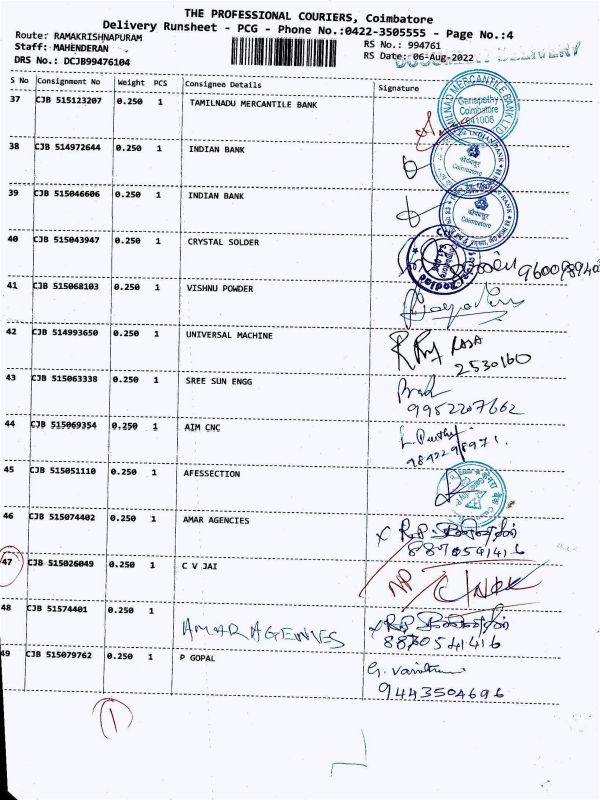 THE PROFESSIONAL COURIERS, Coimbatore
Delivery Runsheet - PCG - Phone No.:0422-3505555 - Page No.:4
Route: RAMAKRISHNAPURAM
RS No.: 994761
Staff: MAHENDERAN
RS Date: 06-Aug-2022
DRS No.: DCJB99476104
DOCUMENT DELIVERY
S No Consignment No Weight PCS Consignee Details Signature
37 CJB 515123207 0.250 1 TAMILNADU MERCANTILE BANK
TAMILNAD MERCANTILE BANK LTD
Ganapathy
Coimbatore
641006
38 CJB 514972644 0.250 1 INDIAN BANK
INDIAN BANK
कोयम्बतूर
Coimbatore
39 CJB 515046606 0.250 1 INDIAN BANK
INDIAN BANK
कोयम्बतूर
Coimbatore
40 CJB 515043947 0.250 1 CRYSTAL SOLDER
41 CJB 515068103 0.250 1 VISHNU POWDER
42 CJB 514993650 0.250 1 UNIVERSAL MACHINE
RAJA
2530160
43 CJB 515063338 0.250 1 SREE SUN ENGG
9952207662
44 CJB 515069354 0.250 1 AIM CNC
9842298971.
45 CJB 515051110 0.250 1 AFESSECTION
46 CJB 515074402 0.250 1 AMAR AGENCIES
x R.P.
8870541416
47 CJB 515026049 0.250 1 C V JAI
NP
48 CJB 51574401 0.250 1 AMAR AGENCIES
x R.P.
8870541416
49 CJB 515079762 0.250 1 P GOPAL
9443504696
1